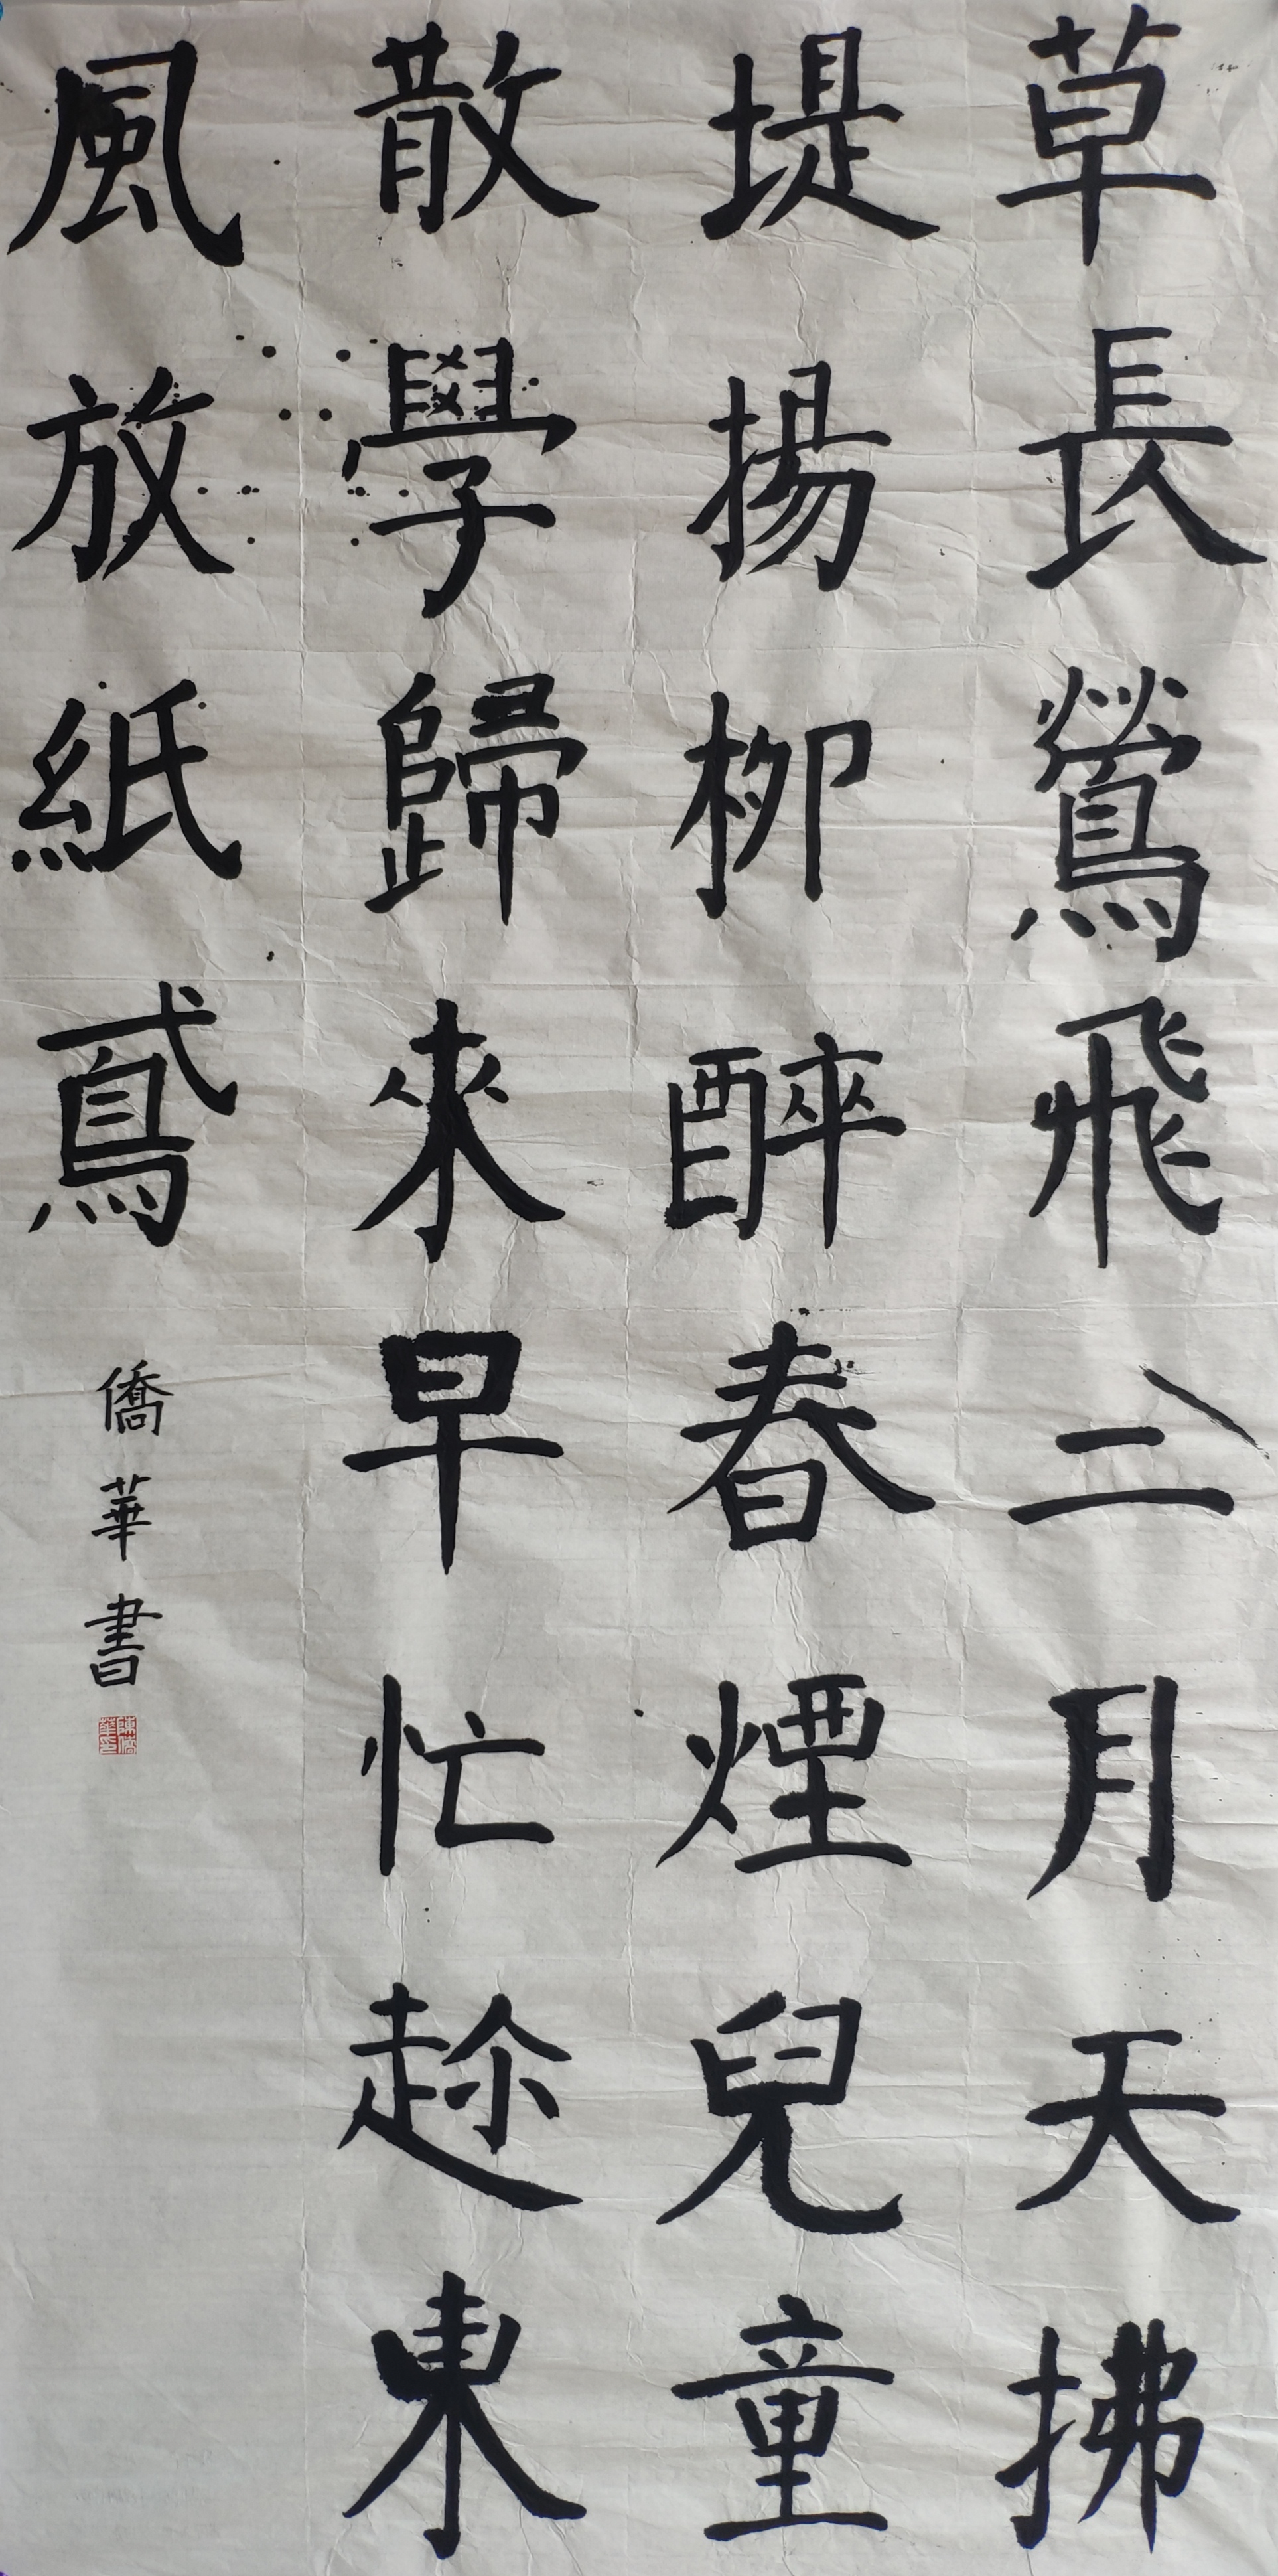 草長鶯飛二月天拂
堤揚柳醉春煙兒童
散學歸來早忙趂東
風放紙鳶
僑華書
陳僑華印